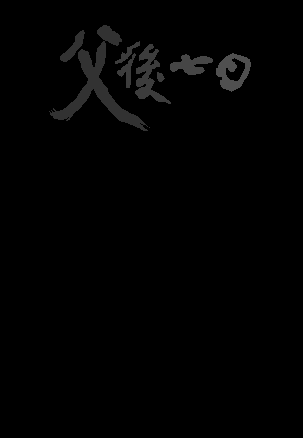 父後七日